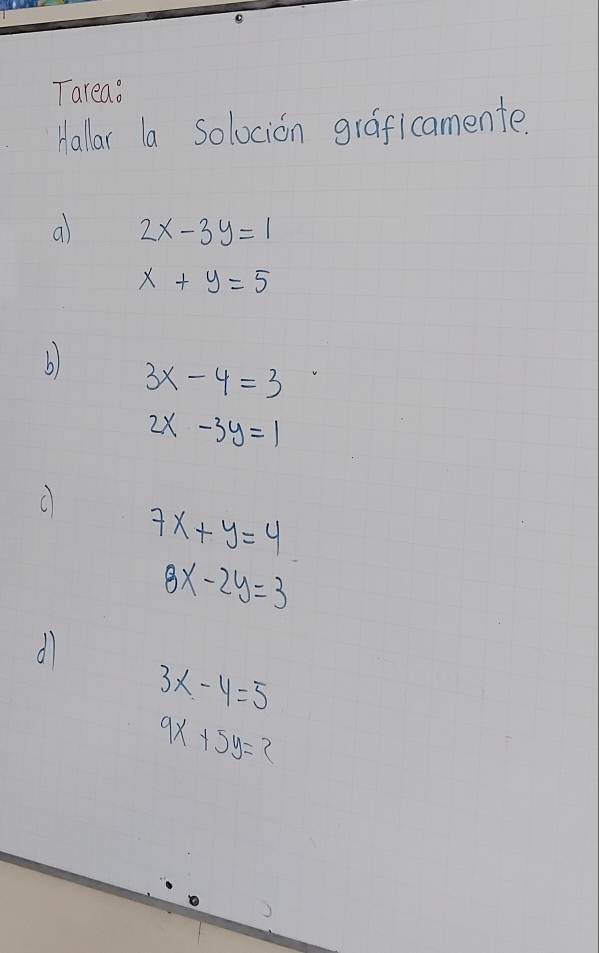 Tarea:
Hallar la Solución gráficamente.
a) 2x - 3y = 1
x + y = 5
b) 3x - 4 = 3
2x - 3y = 1
c) 7x + y = 4
8x - 2y = 3
d) 3x - 4 = 5
9x + 5y = 2